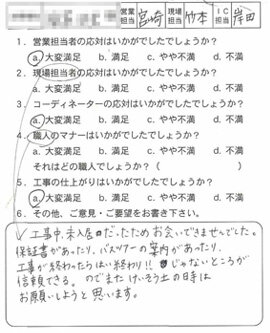 営業担当 宮崎 現場担当 竹本 IC担当 岸田
1．営業担当者の応対はいかがでしたでしょうか？
a. 大変満足 b. 満足 c. やや不満 d. 不満
2．現場担当者の応対はいかがでしたでしょうか？
a. 大変満足 b. 満足 c. やや不満 d. 不満
3．コーディネーターの応対はいかがでしたでしょうか？
a. 大変満足 b. 満足 c. やや不満 d. 不満
4．職人のマナーはいかがでしたでしょうか？
a. 大変満足 b. 満足 c. やや不満 d. 不満
それはどの職人でしょうか？（ ）
5．工事の仕上がりはいかがでしたでしょうか？
a. 大変満足 b. 満足 c. やや不満 d. 不満
6．その他、ご意見・ご要望をお書き下さい。
工事中、未入居だったためお会いできませんでした。
保証書があったり、バスツアーの案内があったり、
工事が終わったらはい終わり!! じゃないところが
信頼できる。のでまたけいそう土の時は
お願いしようと思います。